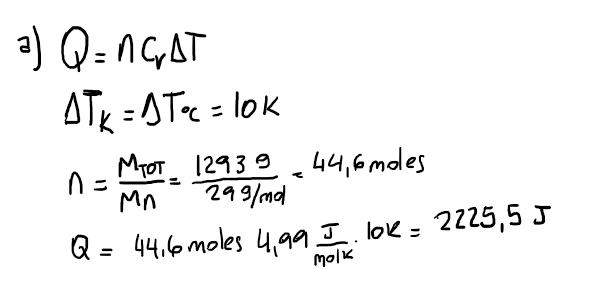 a) Q = n Cv ΔT
ΔT_K = ΔT°C = 10K
n = M_TOT / Mn = 1293 g / 29 g/mol = 44,6 moles
Q = 44,6 moles 4,99 J / molK · 10K = 2225,5 J